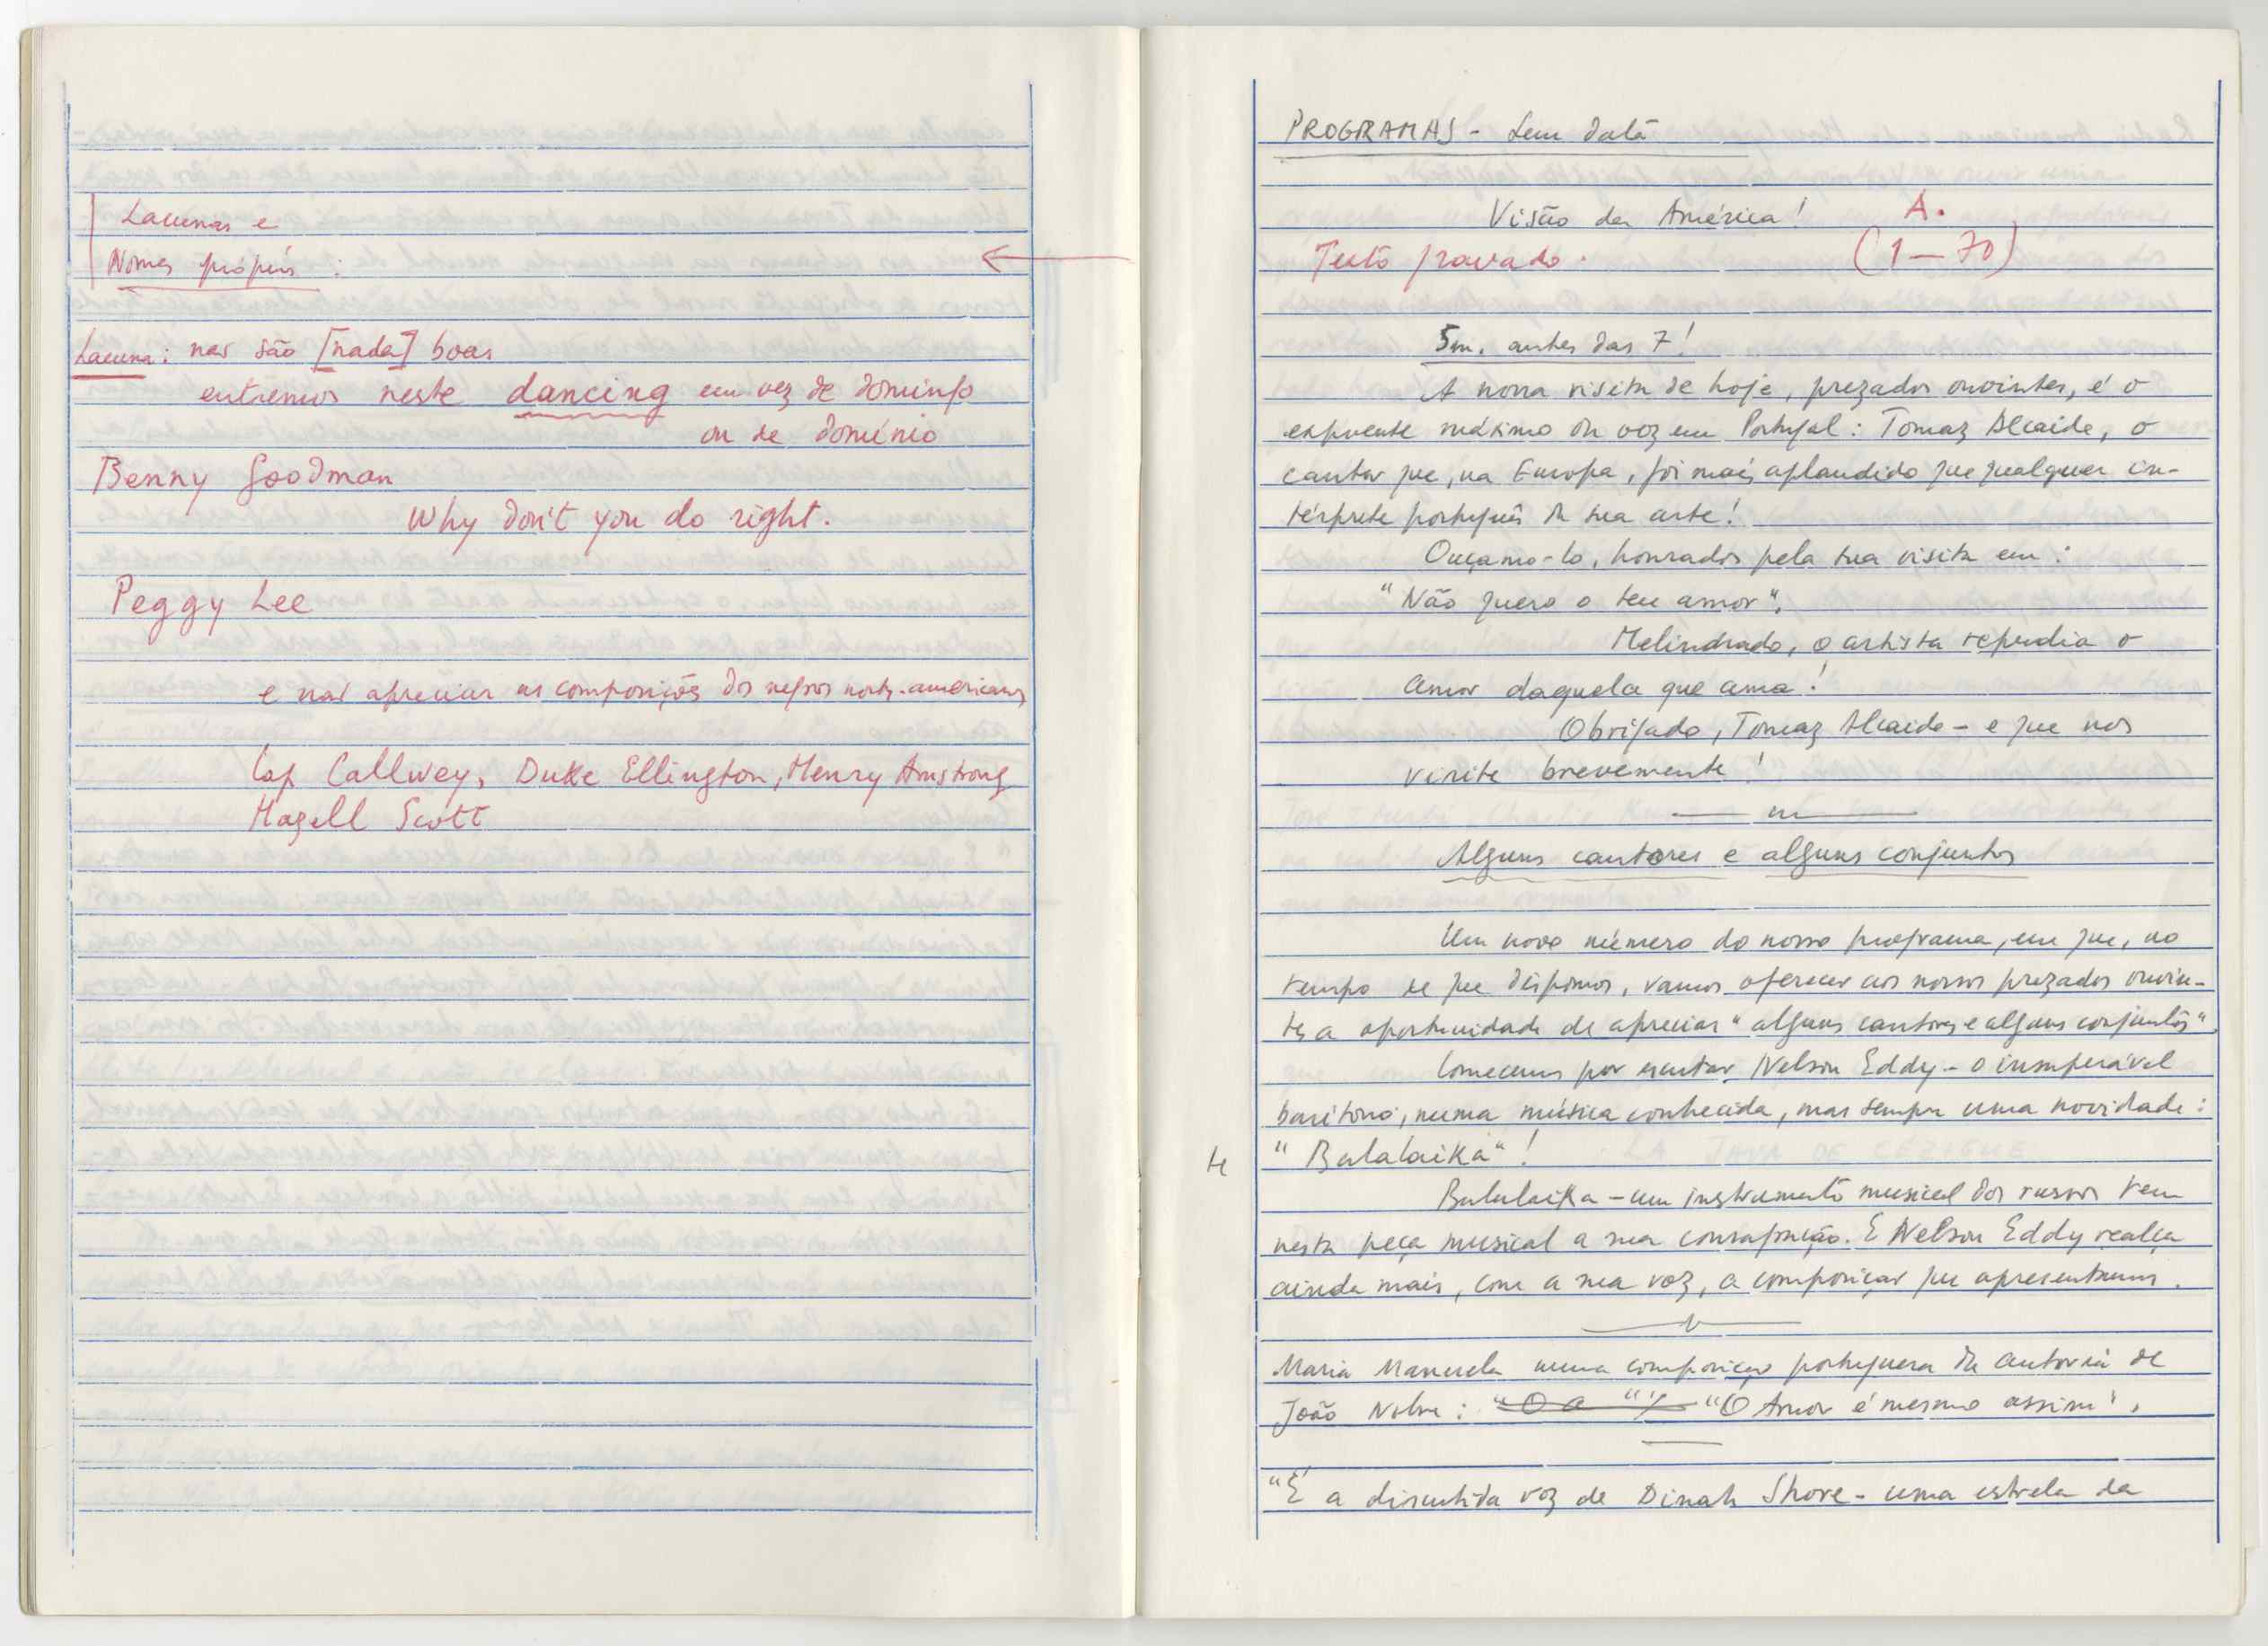 Lacunas e
Nomes própios :
Lacuna: nas são [nada] boas
entremos neste dancing em vez de domingo
ou de domínio
Benny Goodman
Why don't you do right.
Peggy Lee
e nas apreciar as composições dos negros norte-americanos
Cap Callwey, Duke Ellington, Henry Amstrong
Hagell Scott
PROGRAMAS - Sem data
Visão da América! A.
Texto gravado. (1-70)
5m. antes das 7!
A nossa visita de hoje, prezados ouvintes, é o
expoente máximo da voz em Portugal: Tomaz Alcaide, o
cantor que, na Europa, foi mais aplaudido que qualquer in-
térprete português da sua arte!
Ouçamo-lo, honrados pela sua visita em:
"Não quero o teu amor".
Melindrado, o artista repudia o
amor daquela que ama!
Obrigado, Tomaz Alcaide - e que nos
visite brevemente!
Alguns cantores e alguns conjuntos
Um novo número do nosso programa, em que, no
tempo de que dispomos, vamos oferecer aos nossos prezados ouvin-
tes a oportunidade de apreciar "alguns cantores e alguns conjuntos".
Comecemos por escutar Nelson Eddy - o insuperável
barítono, numa música conhecida, mas sempre uma novidade:
te "Balalaika"!
Balalaika - um instrumento musical dos russos tem
nesta peça musical a sua consagração. E Nelson Eddy realça
ainda mais, com a sua voz, a composiçar que apresentamos.
Maria Manuela numa composiçao portuguesa da autoria de
João Nobre: "O a" "O Amor é mesmo assim".
"É a discutida voz de Dinah Shore - uma estrela da